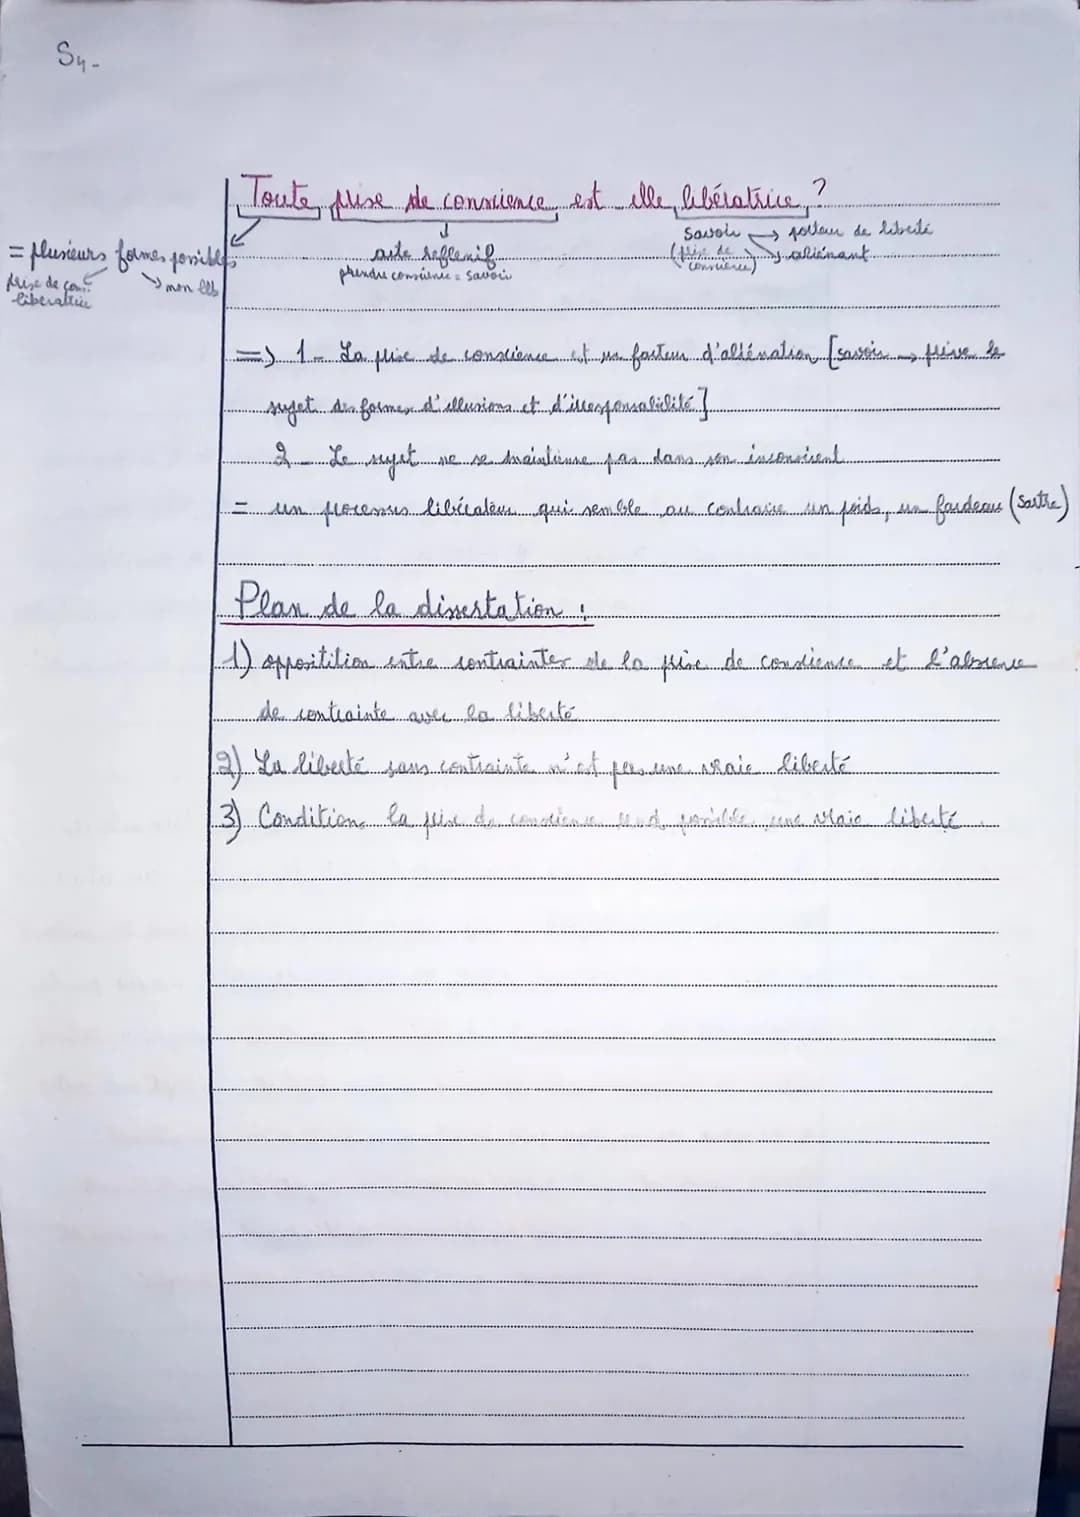 S4-
Toute prise de conscience est elle libératrice ?
= plusieurs formes possibles
prise de cons. libératrice
non lib
acte réflexif
prendre conscience = savoir
savoir → porteur de liberté
(prise de conscience) → aliénant
=> 1 - La prise de conscience est un facteur d'aliénation [savoir → prive le
sujet des formes d'illusions et d'irresponsabilité]
2 - Le sujet ne se maintienne pas dans son inconscient
= un processus libérateur qui semble au contraire un poids, un fardeau (Sartre)
Plan de la dissertation :
1) opposition entre contraintes de la prise de conscience et l'absence
de contrainte avec la liberté
2) La liberté sans contrainte n'est pas une vraie liberté
3) Condition la prise de conscience rend possible une vraie liberté.